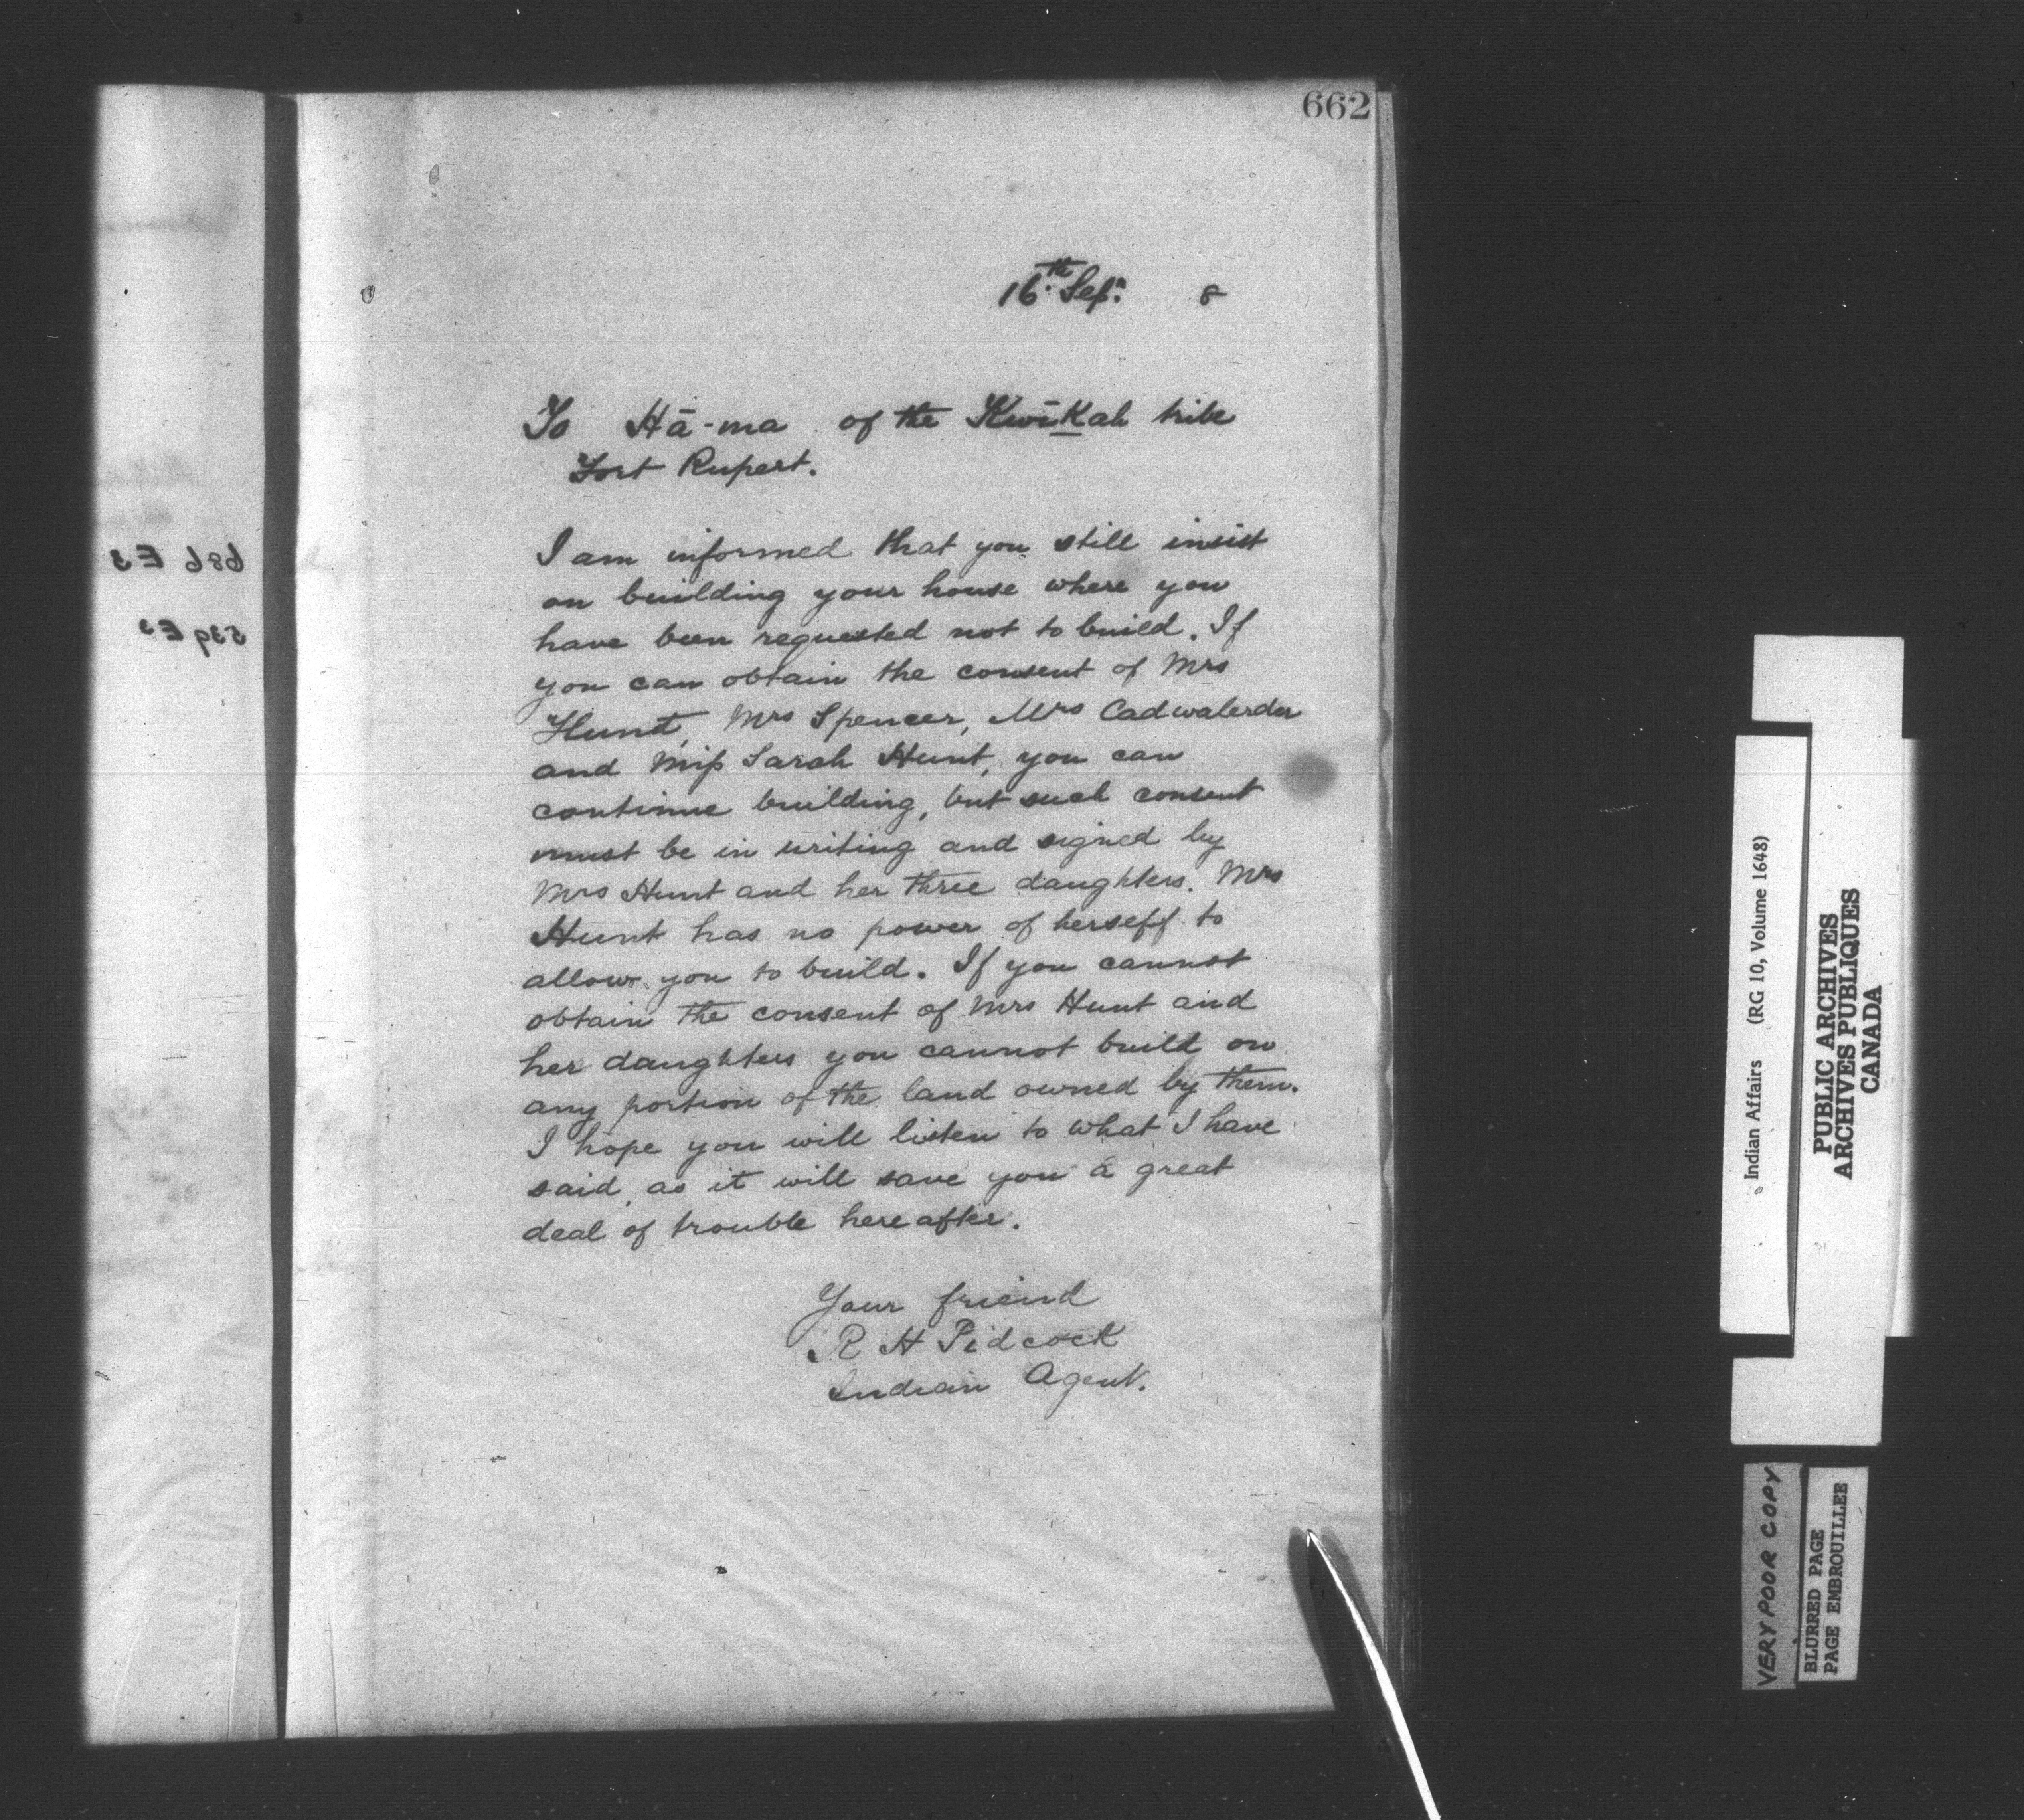 662
16th Sepr. 8
To Hā-ma of the KwīKah tribe
Fort Rupert.
I am informed that you still insist
on building your house where you
have been requested not to build. If
you can obtain the consent of Mrs
Hunt, Mrs Spencer, Mrs Cadwalerder
and Miss Sarah Hunt, you can
continue building, but such consent
must be in writing and signed by
Mrs Hunt and her three daughters. Mrs
Hunt has no power of herself to
allow you to build. If you cannot
obtain the consent of Mrs Hunt and
her daughters you cannot build on
any portion of the land owned by them.
I hope you will listen to what I have
said, as it will save you a great
deal of trouble hereafter.
Your friend
R H Pidcock
Indian Agent.
Indian Affairs (RG 10, Volume 1648)
PUBLIC ARCHIVES
ARCHIVES PUBLIQUES
CANADA
VERY POOR COPY
BLURRED PAGE
PAGE EMBROUILLEE